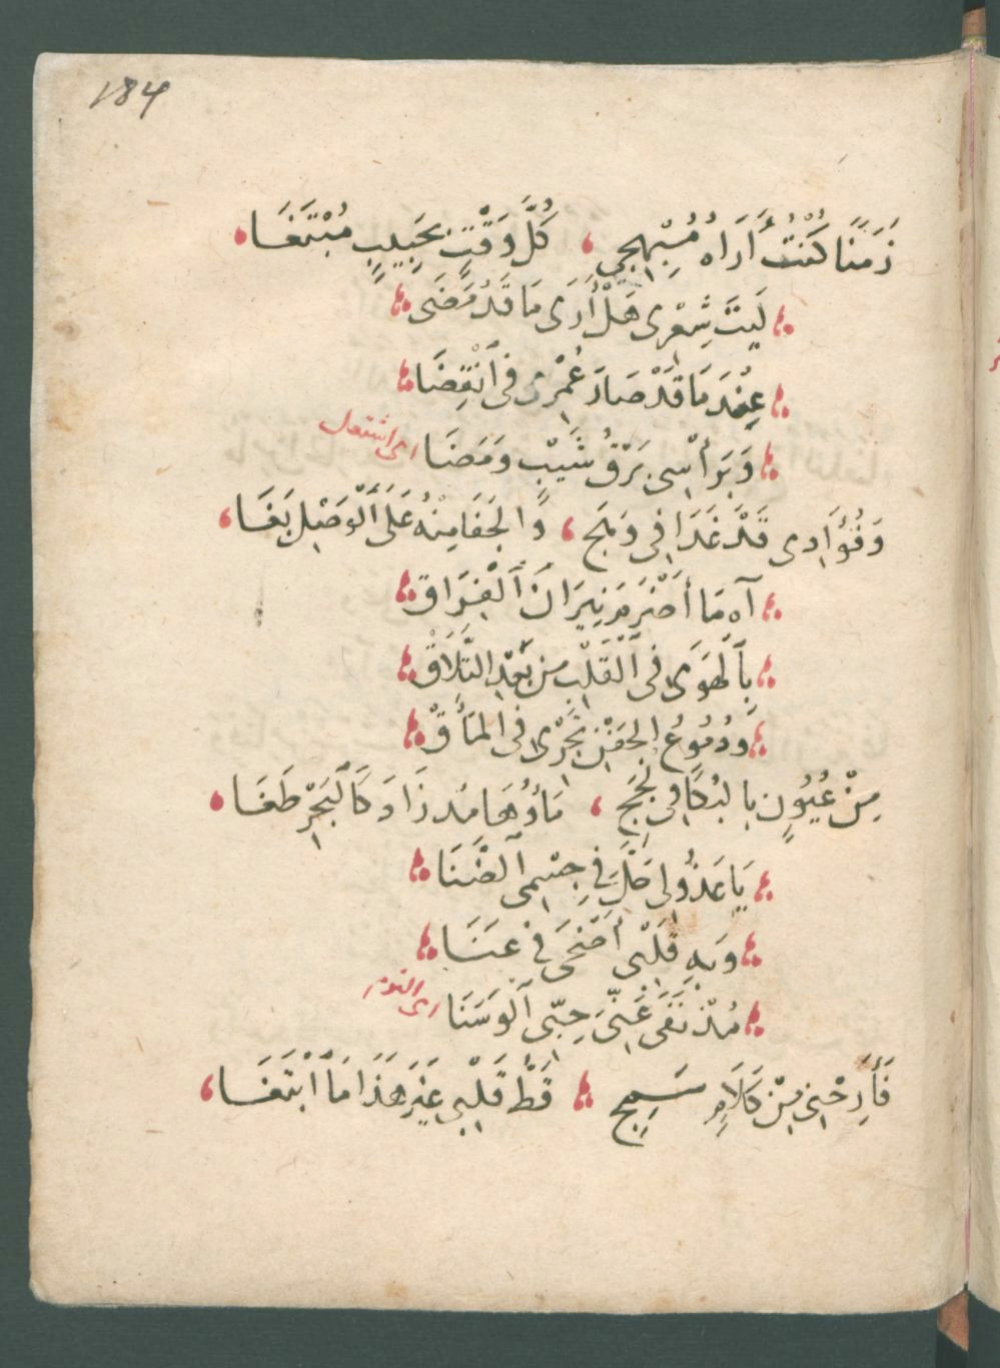 184
زَمَنًا كُنْتُ أَرَاهُ مُبْهِجِي ، كُلَّ وَقْتٍ بِحَبِيبٍ مُبْتَغَا
لَيتَ شِعْرِى هَلْ أَرَى مَا قَدْ مَضَى
عِنْدَ مَا قَدْ صَارَ عُمْرِى فِى ٱنْقِضَا
وَبَرَأْسِى بَرْقُ شَيْبٍ وَمَضَا اى اشتعل
وَفُؤَادِى قَدْ غَدَا فِى وَهَج ، وَالجَفَا مِنْهُ عَلَى ٱلْوَصْلِ بَغَا
آه مَا أَضْرَمَ نِيرَانَ ٱلْفِرَاق
بِٱلْهَوَى فِى ٱلْقَلْبِ مِن بَعْدِ التَّلَاقْ
وَدُمُوعُ الجَفْنِ تَجْرِى فِى المَأَقْ
مِنْ عُيُونٍ بِالبُكَا فِى لُجَجِ ، مَاؤُهَا مُذ زَادَ كَٱلبَحْرِ طَغَا
يَا عَذُولِى حَلَّ فِى جِسْمِى ٱلضَّنَا
وَبِهِ قَلْبِى أَضْحَى فِى عَنَا
مُذْ نَفَى عَنِّى حِبِّى ٱلوَسَنَا اى النوم
فَأَرِحْنِى مِنْ كَلَامٍ سَمِجِ قَطُّ قَلْبِى غَيْرَ هَذَا مَا ٱبْتَغَا